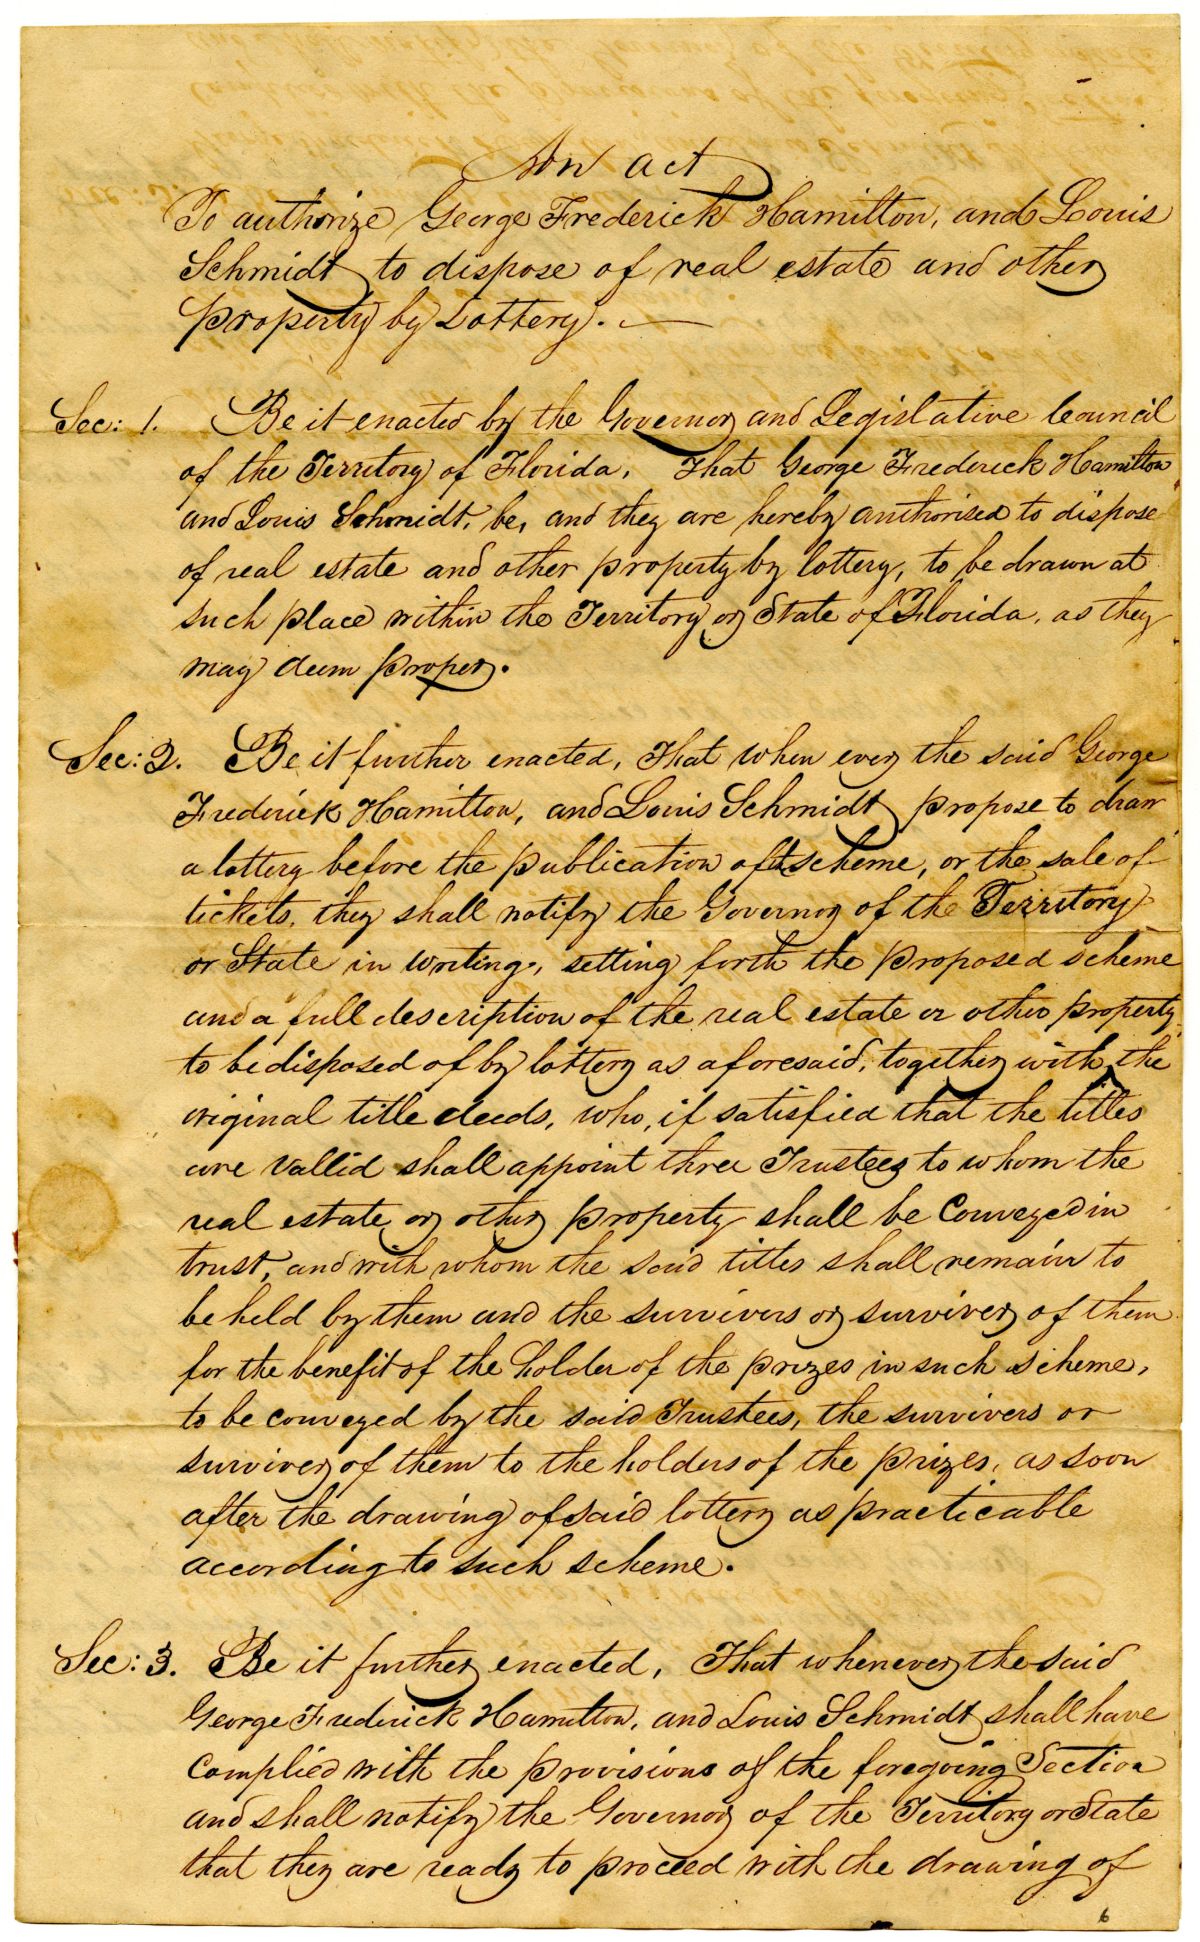 An act
To authorize George Frederick Hamilton, and Louis
Schmidt to dispose of real estate and other
property by Lottery. —
Sec: 1. Be it enacted by the Governor and Legislative Council
of the Territory of Florida, That George Frederick Hamilton
and Louis Schmidt, be, and they are hereby authorised to dispose
of real estate and other property by lottery, to be drawn at
such place within the Territory or State of Florida, as they
may deem proper.
Sec: 2. Be it further enacted, That when ever the said George
Frederick Hamilton, and Louis Schmidt propose to draw
a lottery before the publication of scheme, or the sale of
tickets, they shall notify the Governor of the Territory
or State in writing, setting forth the proposed scheme
and a full description of the real estate or other property
to be disposed of by lottery as aforesaid, together with the
original title deeds, who, if satisfied that the titles
are vallid shall appoint three Trustees to whom the
real estate or other property shall be conveyed in
trust, and with whom the said titles shall remain to
be held by them and the survivers or surviver of them
for the benefit of the holder of the prizes in such scheme,
to be conveyed by the said Trustees, the survivers or
surviver of them to the holders of the prizes, as soon
after the drawing of said lottery as practicable
according to such scheme.
Sec: 3. Be it further enacted, That whenever the said
George Frederick Hamilton, and Louis Schmidt shall have
complied with the provisions of the foregoing Section
and shall notify the Governor of the Territory or State
that they are ready to proceed with the drawing of
6